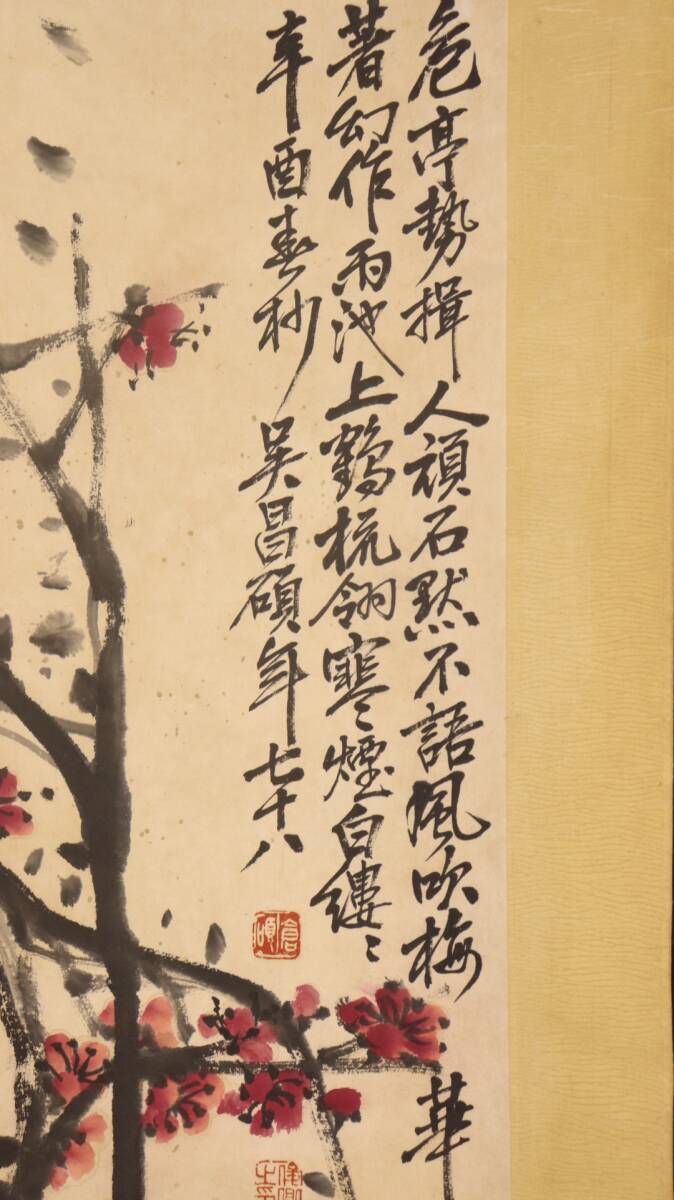 危亭勢揖人頑石默不語風吹梅華
著幻作雨池上鶴梳翎寒煙白縷〻
辛酉春杪吳昌碩年七十八
倉碩